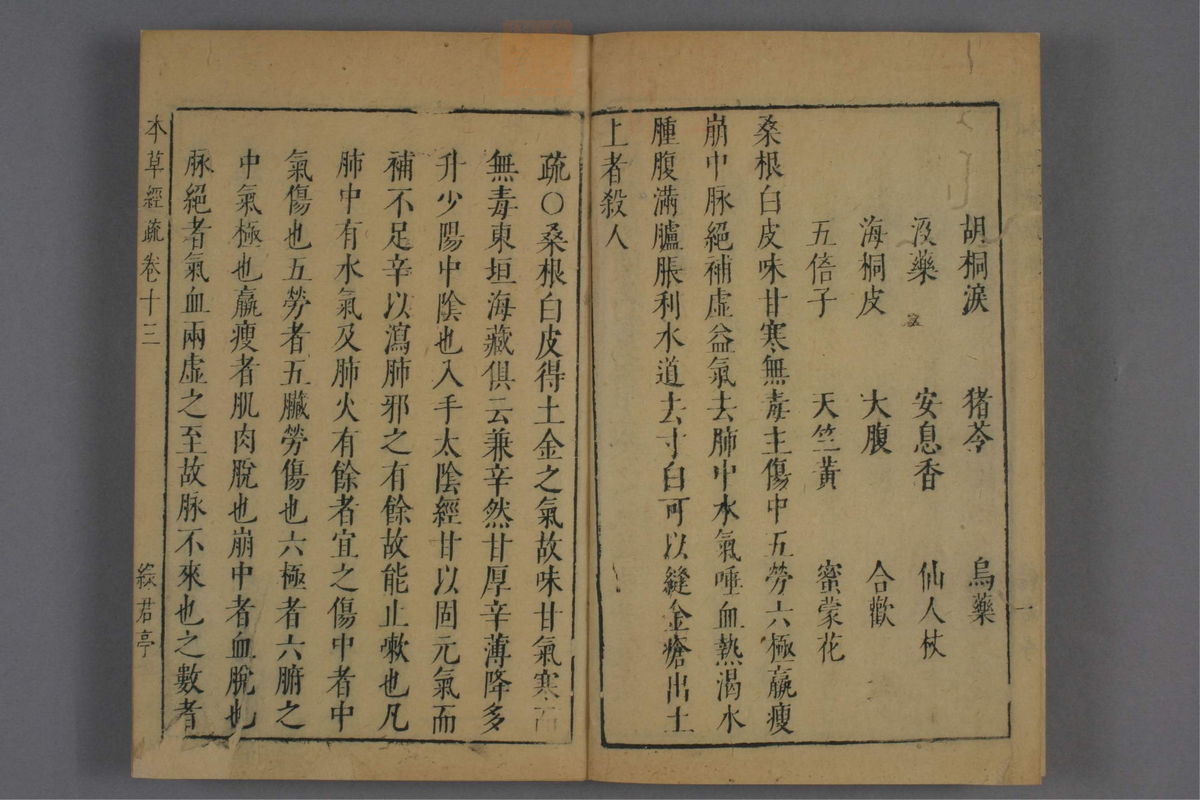 胡桐淚　猪苓　烏藥
沒藥　安息香　仙人杖
海桐皮　大腹　合歡
五倍子　天竺黃　蜜蒙花
桑根白皮味甘寒無毒主傷中五勞六極羸瘦
崩中脉絕補虛益氣去肺中水氣唾血熱渴水
腫腹滿臚脹利水道去寸白可以縫金瘡出土
上者殺人
疏○桑根白皮得土金之氣故味甘氣寒而
無毒東垣海藏俱云兼辛然甘厚辛薄降多
升少陽中陰也入手太陰經甘以固元氣而
補不足辛以瀉肺邪之有餘故能止嗽也凡
肺中有水氣及肺火有餘者宜之傷中者中
氣傷也五勞者五臟勞傷也六極者六腑之
中氣極也羸瘦者肌肉脫也崩中者血脫也
脉絕者氣血兩虛之至故脉不來也之數者
本草經疏卷十三　綠君亭